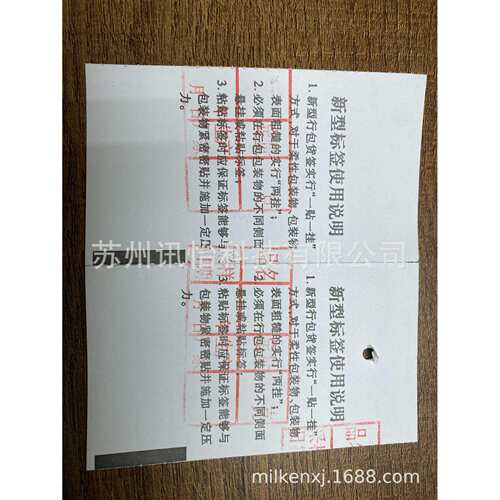 新型标签使用说明
1.新型行包货签实行“一贴一挂”
方式,对于柔性包装物、包装物
表面粗糙的实行“两挂”;
2.必须在行包包装物的不同侧面
悬挂或粘贴标签;
3.粘贴标签时应保证标签能够与
包装物紧密密贴并施加一定压
力。
新型标签使用说明
1.新型行包货签实行“一贴一挂”
方式,对于柔性包装物、包装物
表面粗糙的实行“两挂”;
2.必须在行包包装物的不同侧面
悬挂或粘贴标签;
3.粘贴标签时应保证标签能够与
包装物紧密密贴并施加一定压
力。
苏州讯怡科技有限公司
milkenxj.1688.com